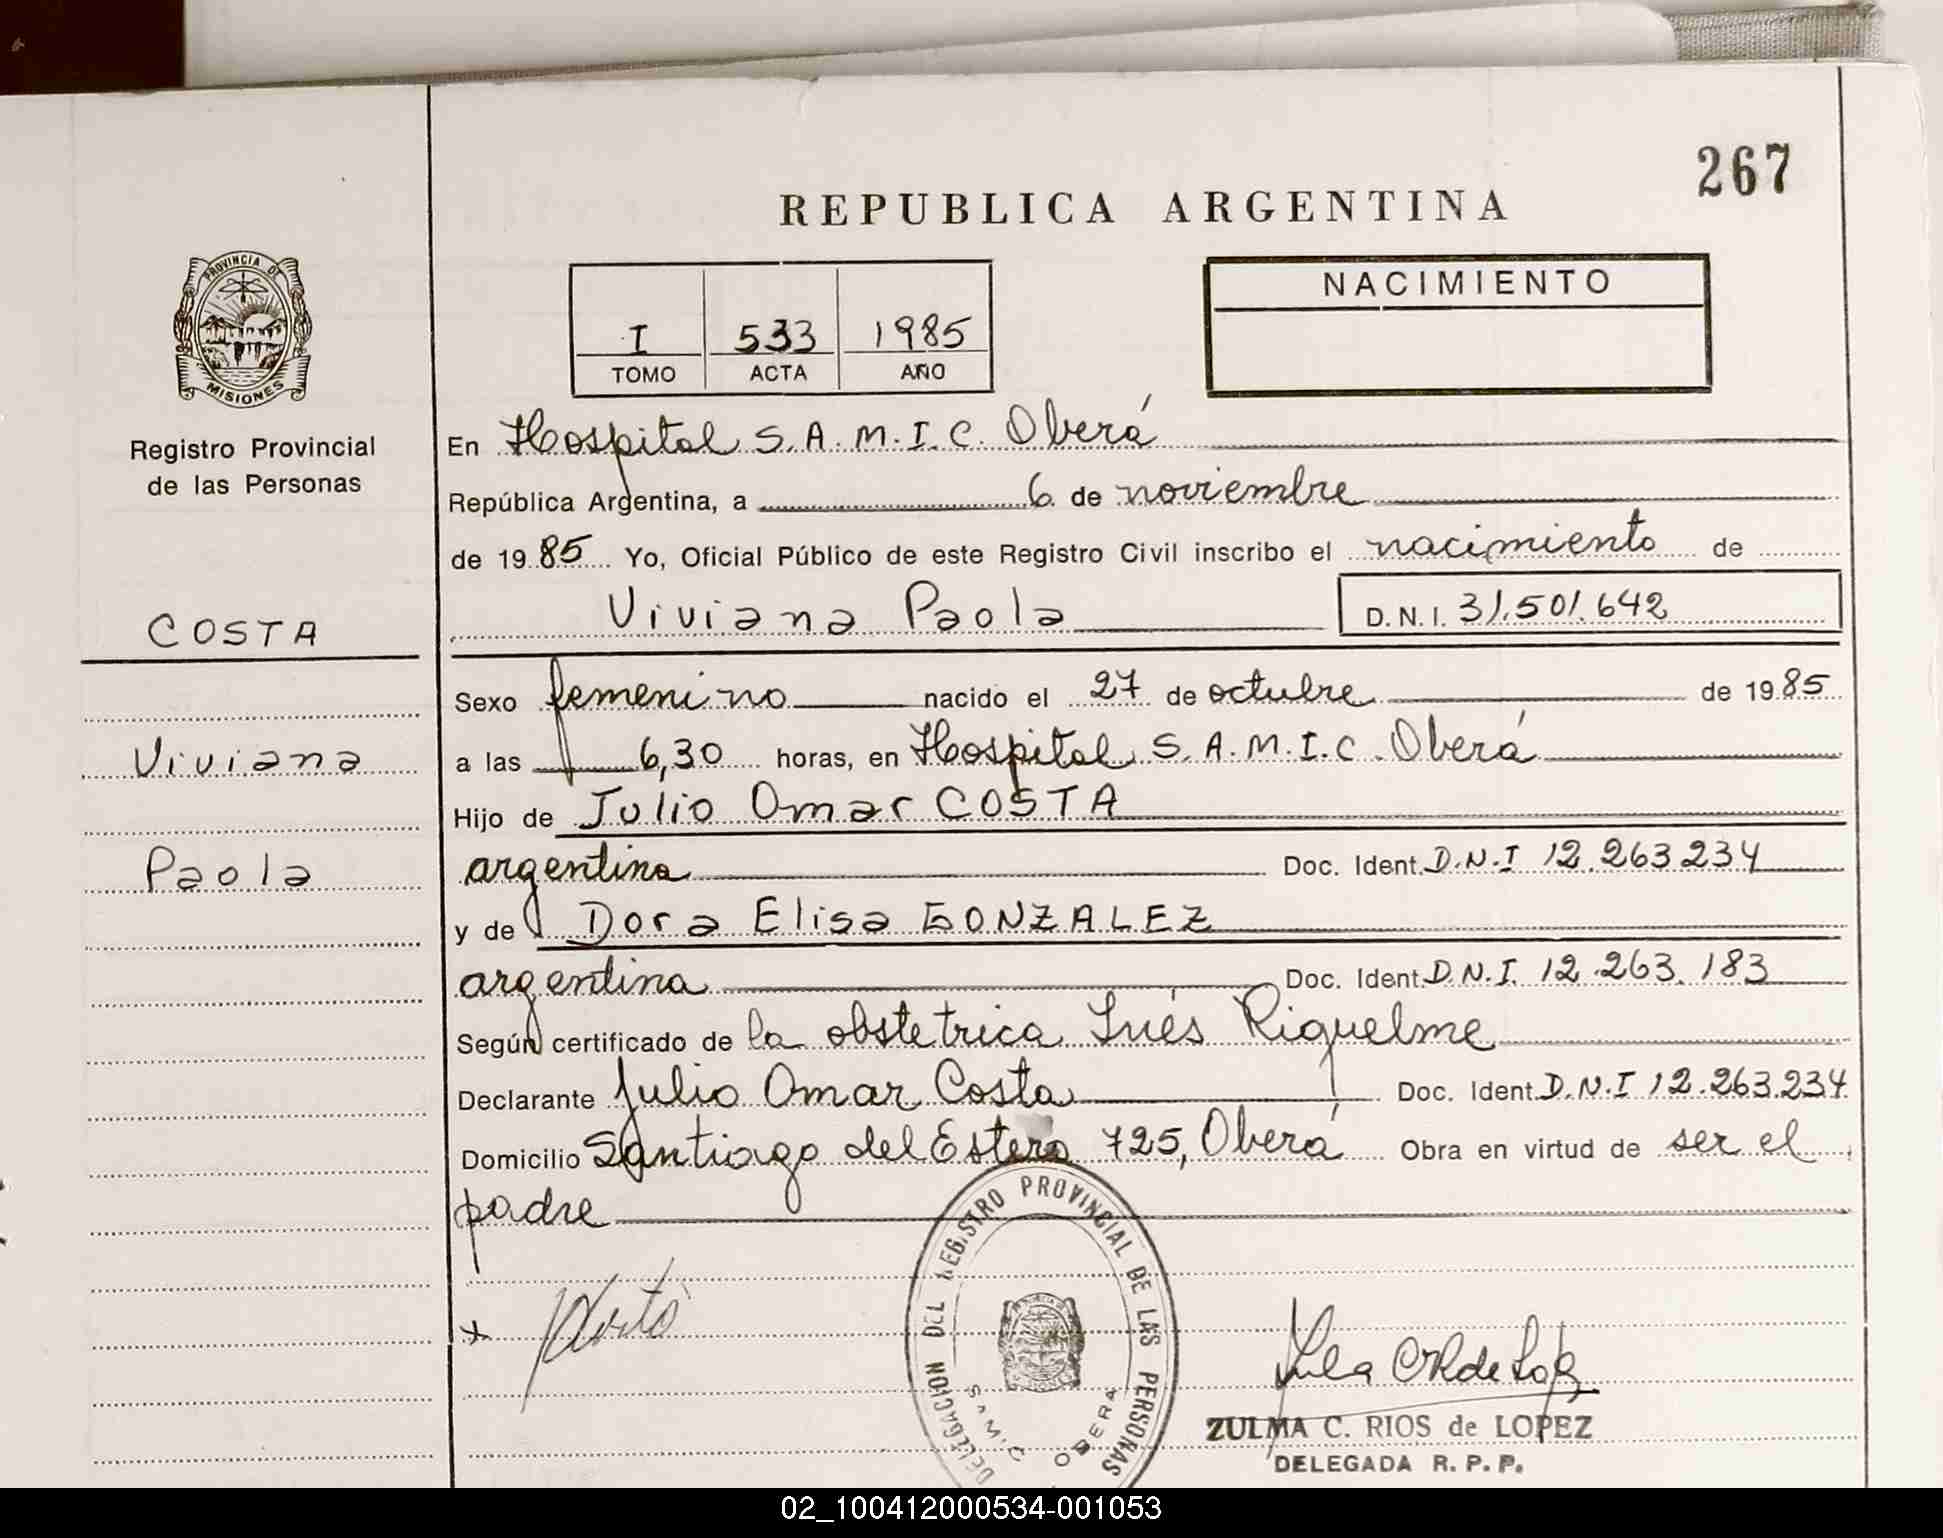 267
REPUBLICA ARGENTINA
PROVINCIA DE
MISIONES
Registro Provincial
de las Personas
COSTA
Viviana
Paola
I 533 1985
TOMO ACTA AÑO
NACIMIENTO
En Hospital S.A.M.I.C. Oberá
República Argentina, a 6 de noviembre
de 1985 Yo, Oficial Público de este Registro Civil inscribo el nacimiento de
Viviana Paola D.N.I. 31.501.642
Sexo femenino nacido el 27 de octubre de 1985
a las 6,30 horas, en Hospital S.A.M.I.C. Oberá
Hijo de Julio Omar COSTA
argentina Doc. Ident. D.N.I 12.263.234
y de Dora Elisa GONZALEZ
argentina Doc. Ident. D.N.I. 12.263.183
Según certificado de la obstetrica Inés Riquelme
Declarante Julio Omar Costa Doc. Ident. D.N.I 12.263.234
Domicilio Santiago del Estero 725, Oberá Obra en virtud de ser el
padre
DELEGACION DEL REGISTRO PROVINCIAL DE LAS PERSONAS
SAMIC OBERA
ZULMA C. RIOS de LOPEZ
DELEGADA R. P. P.
02_100412000534-001053